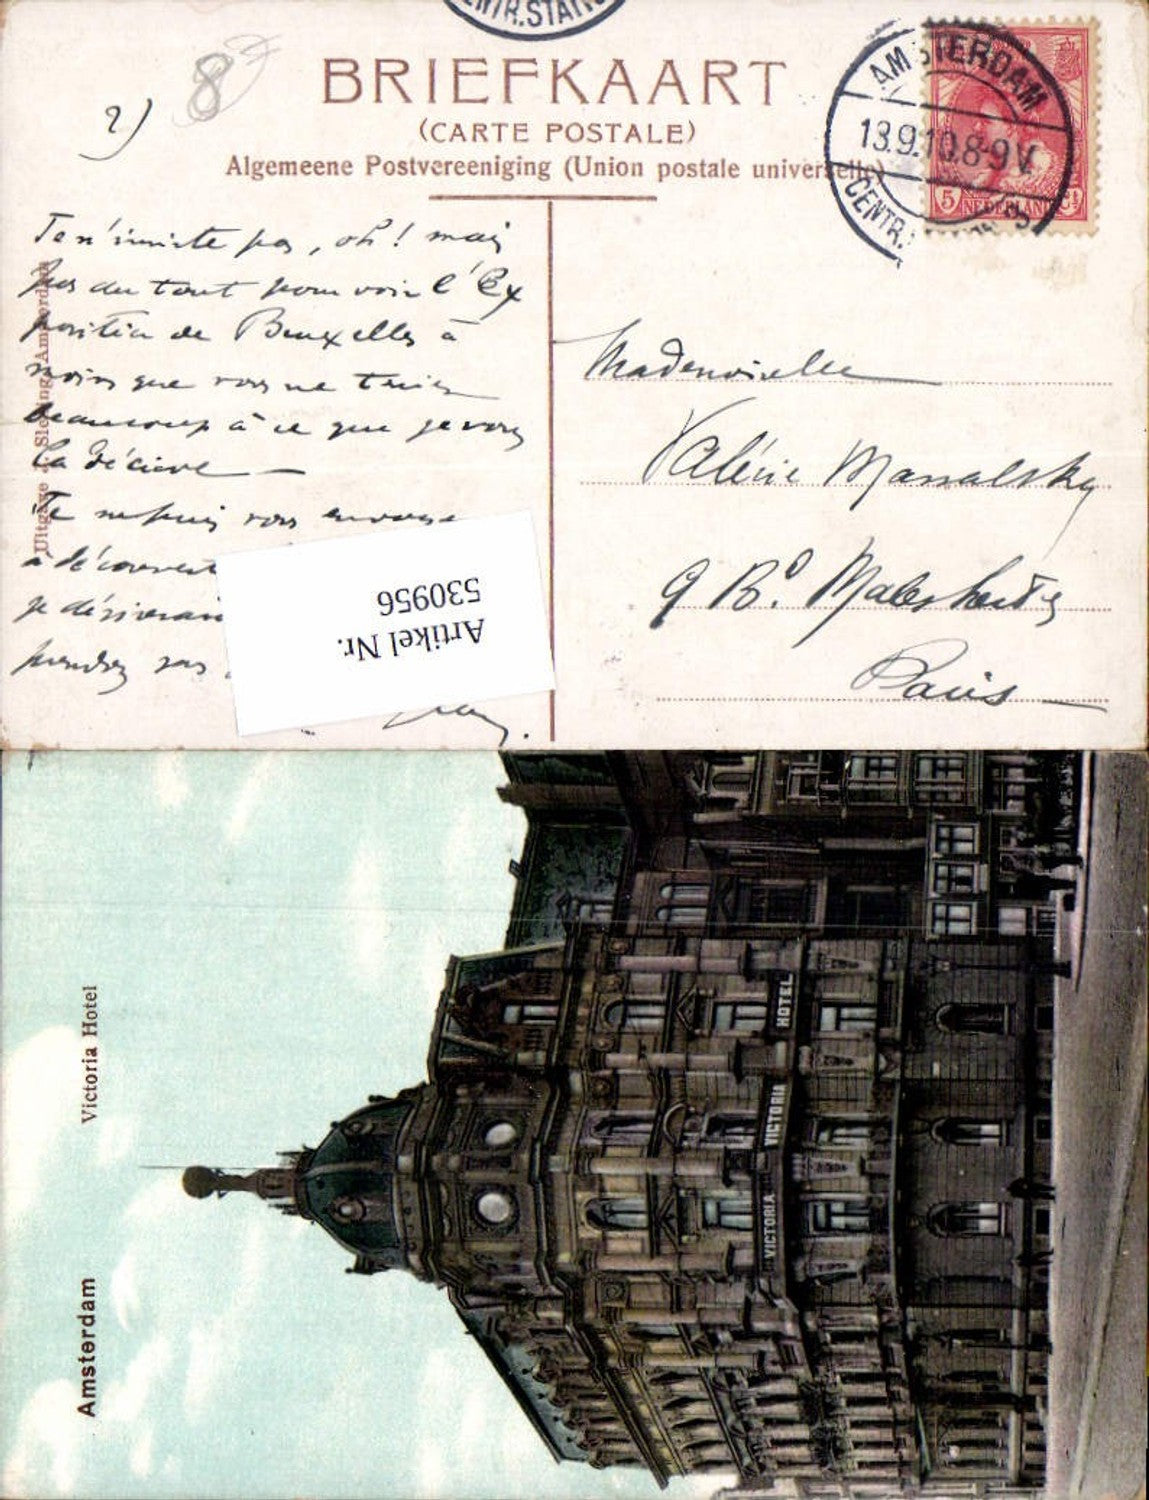 CENTR.STATIO
8
2)
BRIEFKAART
(CARTE POSTALE)
Algemeene Postvereeniging (Union postale universelle)
AMSTERDAM
13.9.10.8-9V
CENTR.
5 NEDERLAND ct
Uitgave J. Sleding, Amsterdam
Je n'insiste pas, oh! mais
pas du tout pour voir l'Ex
position de Bruxelles à
moins que vous ne teniez
beaucoup à ce que je vous
la décrive —
Je ne puis vous envoyer
à découvert
je désirerais
prendrez vos
Mademoiselle
Valérie Massalsky
9 Bd. Malesherbes
Paris
Artikel Nr.
530956
Amsterdam
Victoria Hotel
VICTORIA VICTORIA HOTEL